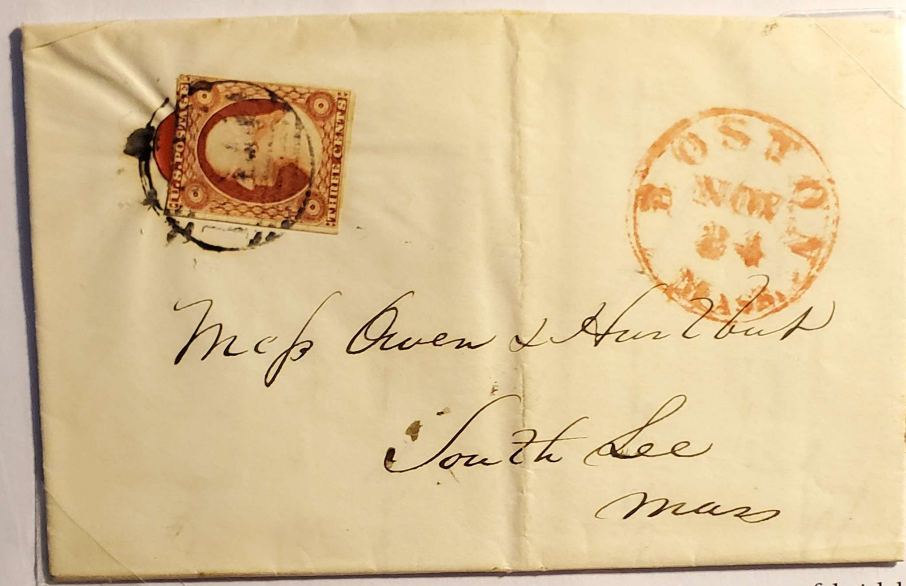 U.S. POSTAGE
THREE CENTS
BOSTON
NOV
MASS
Mess Owen & Hurlbut
South Lee
Mass